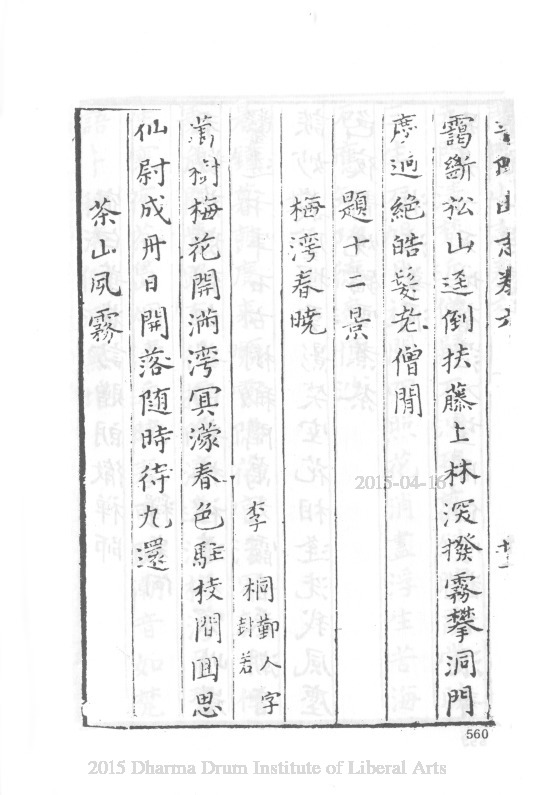 山志卷六
靄斷松山逕倒扶藤上林深撥霧攀洞門
塵迥絕皓髮老僧閒
題十二景
梅灣春曉
李桐 鄞人字封若
萬樹梅花開滿灣冥濛春色駐枝間囬思
仙尉成丹日開落随時待九還
茶山夙霧
2015-04-16
560
2015 Dharma Drum Institute of Liberal Arts